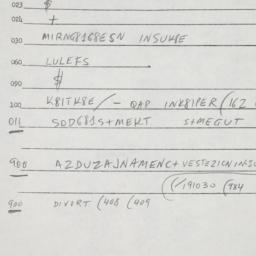 023 $
024 +
030 MIRNG8168ESN INSUK8E
060 LULEFS
090 $
100 K8ITK8E/- QAP INK8IPER (162
011 SOD681S+MEKT S+MEGUT
900 AZDUZAJNAMENC+VESTEZICN
(/191030 (984
900 DIVORT (408 (409